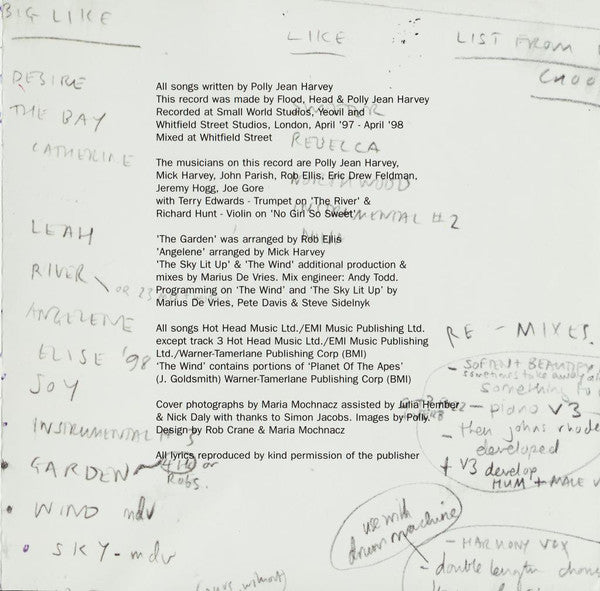 BIG LIKE
LIKE
LIST FROM
CHOO
DESIRE
THE BAY
CATHERINE
LEAH
RIVER
OR 23
ANGELENE
ELISE '98
JOY
INSTRUMENTAL # 3
GARDEN 4TH or
ROBS.
WIND mdv
SKY - mdv
REBECCA
NORTHWOOD
INSTRUMENTAL # 2
NINA
All songs written by Polly Jean Harvey
This record was made by Flood, Head & Polly Jean Harvey
Recorded at Small World Studios, Yeovil and
Whitfield Street Studios, London, April '97 - April '98
Mixed at Whitfield Street
The musicians on this record are Polly Jean Harvey,
Mick Harvey, John Parish, Rob Ellis, Eric Drew Feldman,
Jeremy Hogg, Joe Gore
with Terry Edwards - Trumpet on 'The River' &
Richard Hunt - Violin on 'No Girl So Sweet'
'The Garden' was arranged by Rob Ellis
'Angelene' arranged by Mick Harvey
'The Sky Lit Up' & 'The Wind' additional production &
mixes by Marius De Vries. Mix engineer: Andy Todd.
Programming on 'The Wind' and 'The Sky Lit Up' by
Marius De Vries, Pete Davis & Steve Sidelnyk
All songs Hot Head Music Ltd./EMI Music Publishing Ltd.
except track 3 Hot Head Music Ltd./EMI Music Publishing
Ltd./Warner-Tamerlane Publishing Corp (BMI)
'The Wind' contains portions of 'Planet Of The Apes'
(J. Goldsmith) Warner-Tamerlane Publishing Corp (BMI)
Cover photographs by Maria Mochnacz assisted by Julia Hember
& Nick Daly with thanks to Simon Jacobs. Images by Polly.
Design by Rob Crane & Maria Mochnacz
All lyrics reproduced by kind permission of the publisher
RE - MIXES.
- SOFTEN + BEAUTIFY
sometimes take away
something to
- piano V3
- then johns rhode
developed
+ V3 develop
HUM + MALE V
use with
drum machine
- HARMONY VOX
- double length chorus